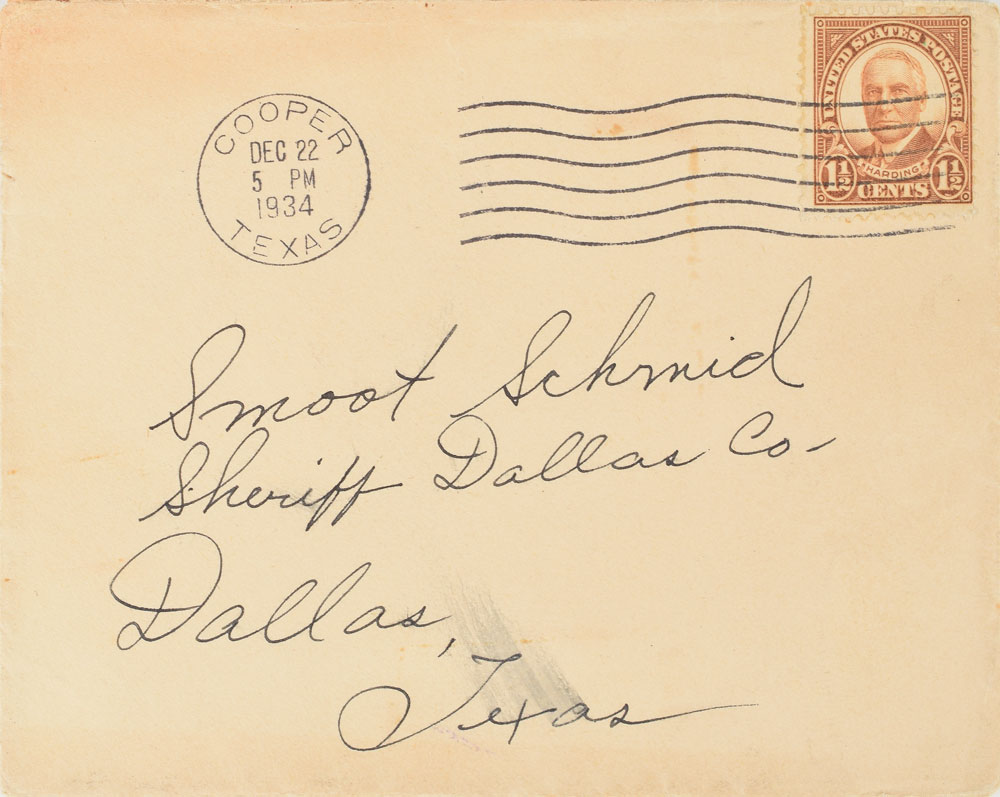 COOPER
DEC 22
5 PM
1934
TEXAS
UNITED STATES POSTAGE
HARDING
1½ CENTS 1½
Smoot Schmid
Sheriff Dallas Co-
Dallas,
Texas